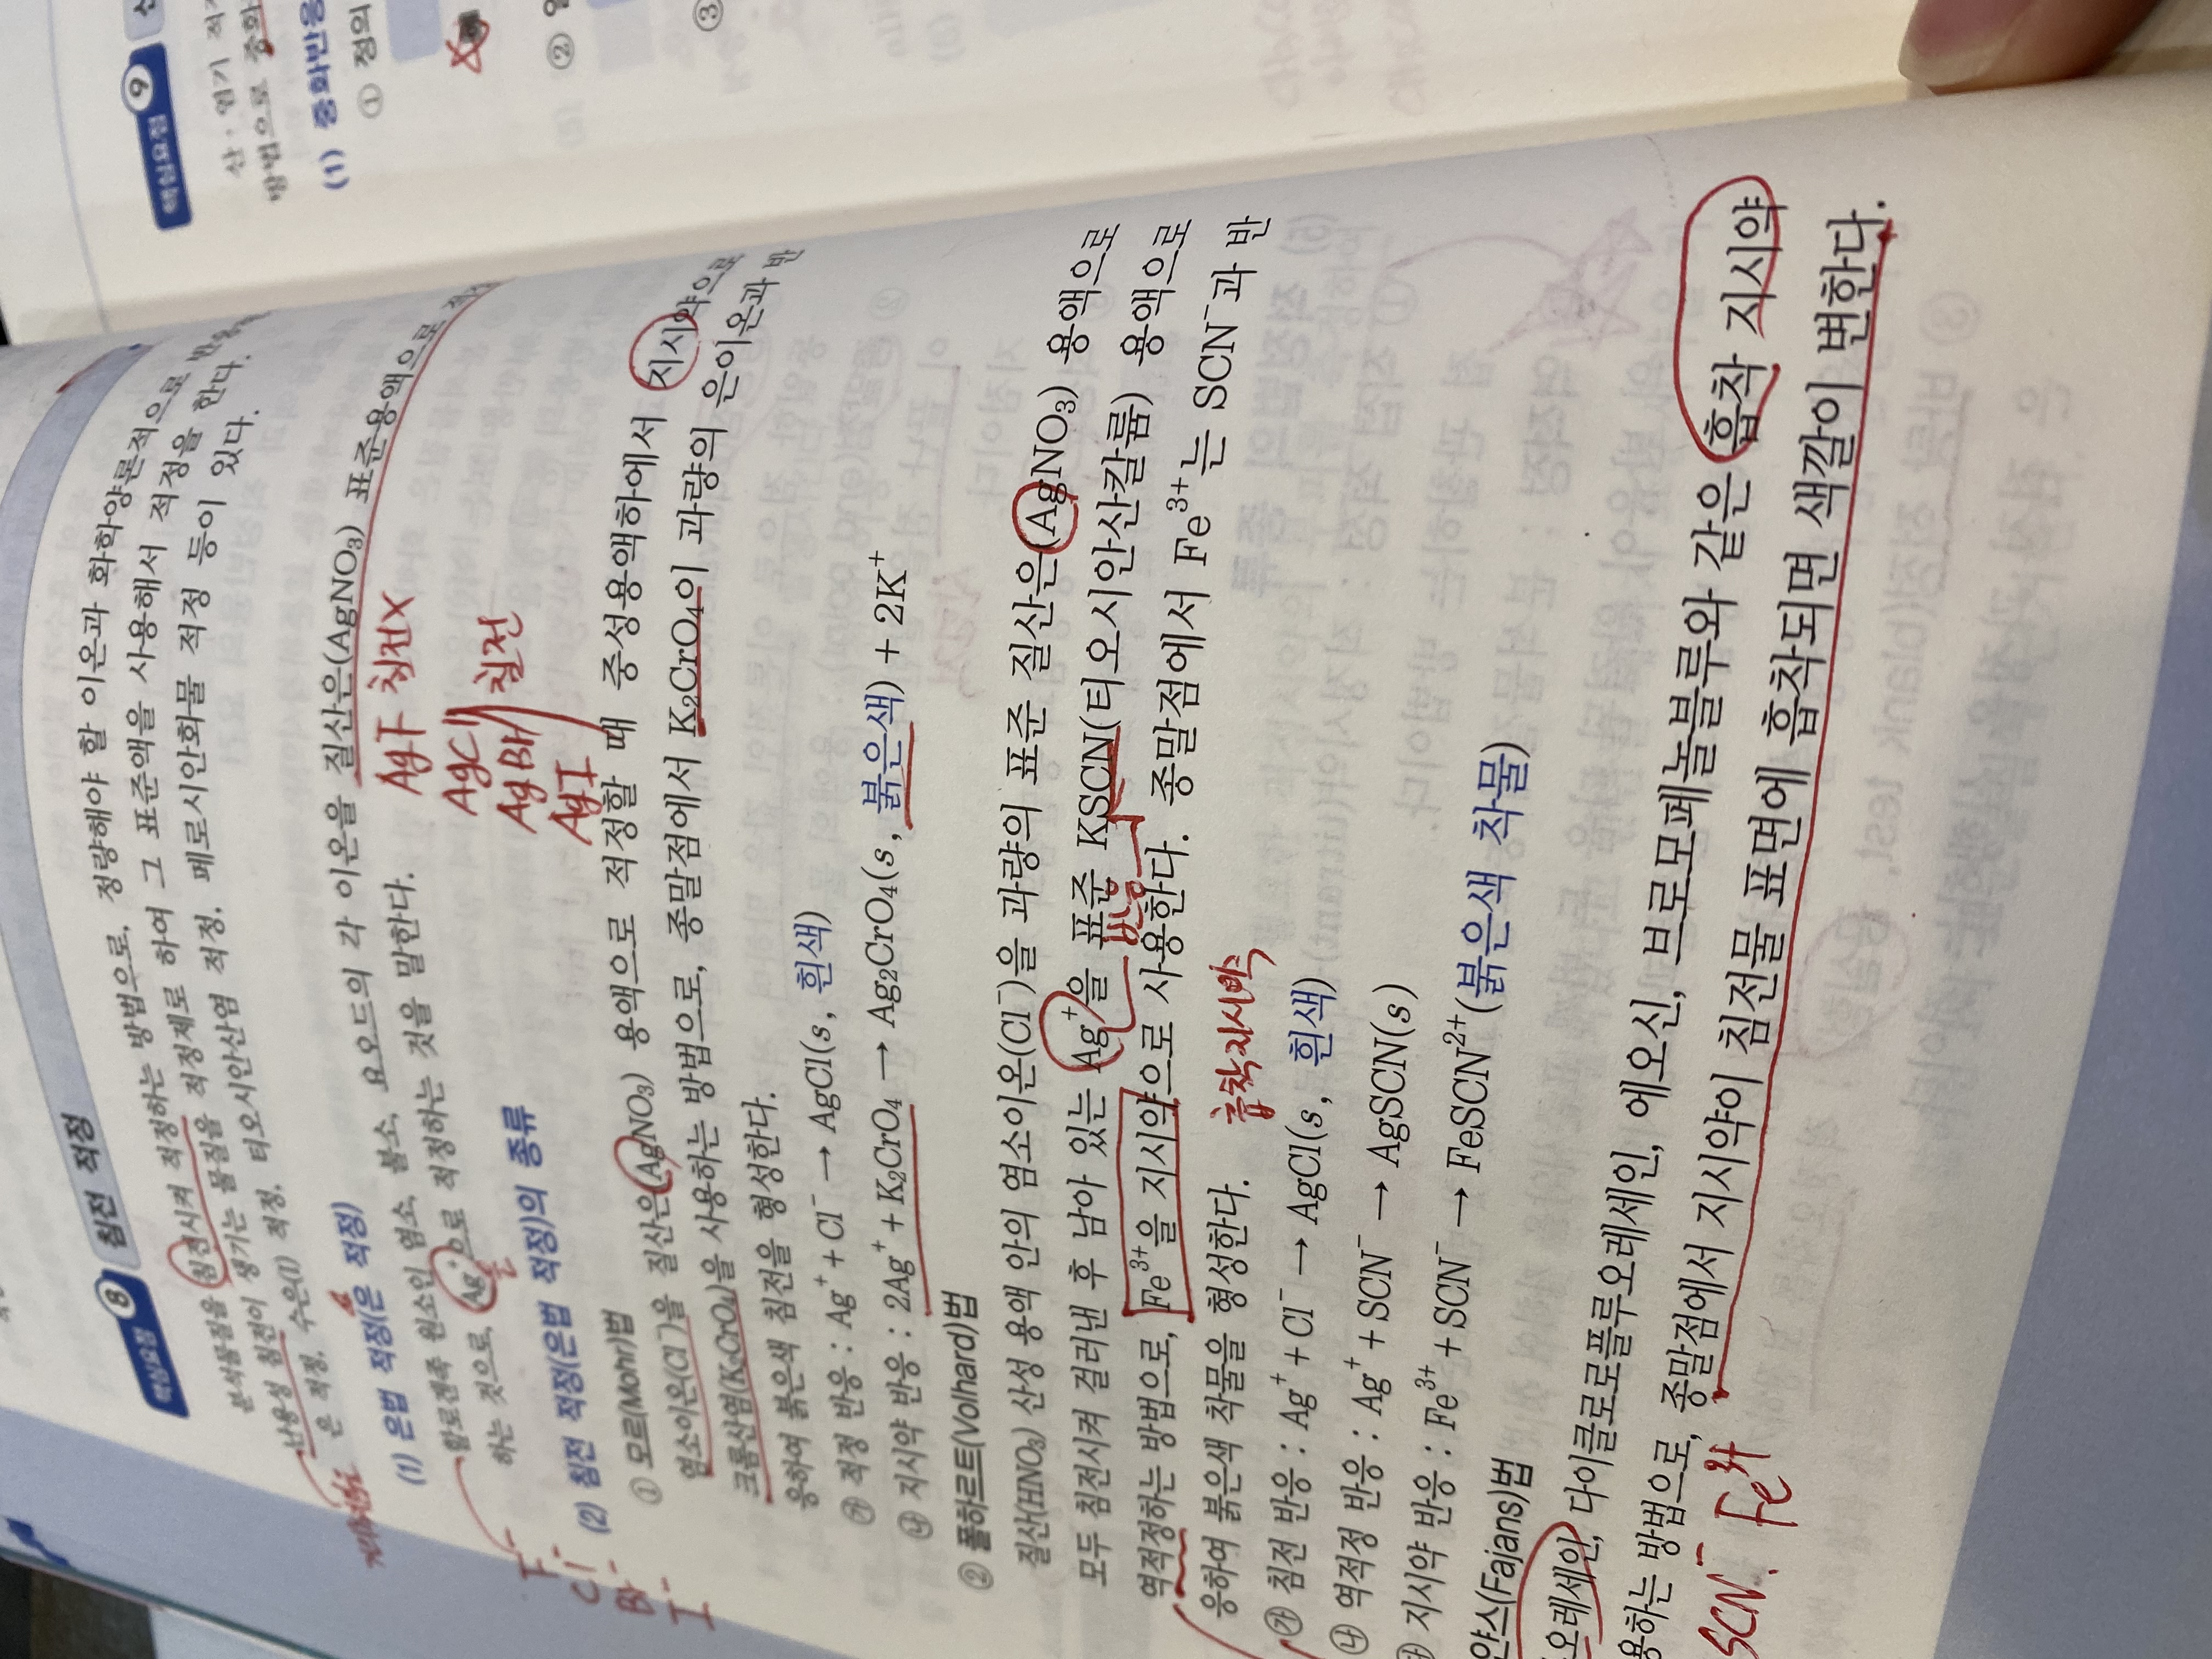 핵심요점 8 침전 적정
분석물질을 침전시켜 적정하는 방법으로, 정량해야 할 이온과 화학양론적으로
난용성 침전이 생기는 물질을 적정제로 하여 그 표준액을 사용해서 적정을 한다.
은 적정, 수은(I) 적정, 티오시안산염 적정, 페로시안화물 적정 등이 있다.
(1) 은법 적정(은 적정)
할로겐족 원소인 염소, 불소, 요오드의 각 이온을 질산은(AgNO₃) 표준용액으로
하는 것으로, Ag⁺으로 적정하는 것을 말한다.
AgF 침전X
AgCl
AgBr 침전
AgI
F⁻
Cl⁻
Br⁻
I⁻
(2) 침전 적정(은법 적정)의 종류
① 모르(Mohr)법
염소이온(Cl⁻)을 질산은(AgNO₃) 용액으로 적정할 때 중성용액하에서 지시약으로
크롬산염(K₂CrO₄)을 사용하는 방법으로, 종말점에서 K₂CrO₄이 과량의 은이온과 반
응하여 붉은색 침전을 형성한다.
㉮ 적정 반응 : Ag⁺ + Cl⁻ → AgCl(s, 흰색)
㉯ 지시약 반응 : 2Ag⁺ + K₂CrO₄ → Ag₂CrO₄(s, 붉은색) + 2K⁺
② 폴하르트(Volhard)법
질산(HNO₃) 산성 용액 안의 염소이온(Cl⁻)을 과량의 표준 질산은(AgNO₃) 용액으로
모두 침전시켜 걸러낸 후 남아 있는 Ag⁺을 표준 KSCN(티오시안산칼륨) 용액으로
역적정하는 방법으로, Fe³⁺을 지시약으로 사용한다. 종말점에서 Fe³⁺는 SCN⁻과 반
응하여 붉은색 착물을 형성한다.
흡착지시약
㉮ 침전 반응 : Ag⁺ + Cl⁻ → AgCl(s, 흰색)
㉯ 역적정 반응 : Ag⁺ + SCN⁻ → AgSCN(s)
지시약 반응 : Fe³⁺ + SCN⁻ → FeSCN²⁺(붉은색 착물)
얀스(Fajans)법
오레세인, 다이클로로플루오레세인, 에오신, 브로모페놀블루와 같은 흡착 지시약
용하는 방법으로, 종말점에서 지시약이 침전물 표면에 흡착되면 색깔이 변한다.
SCN⁻ Fe³⁺
핵심요점 9
산·염기 적
방법으로 중화
(1) 중화반응
① 정의
②
③